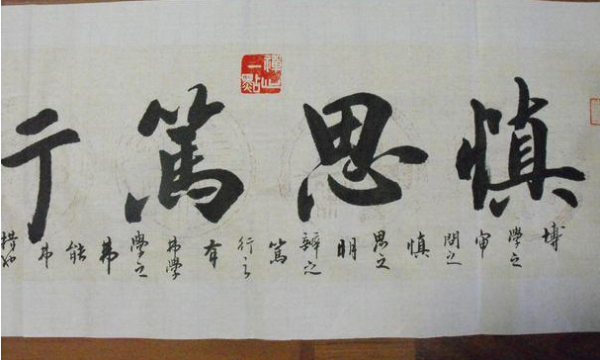 慎思篤行
博學之审問之慎思之明辯之篤行之有弗學學之弗能弗措也